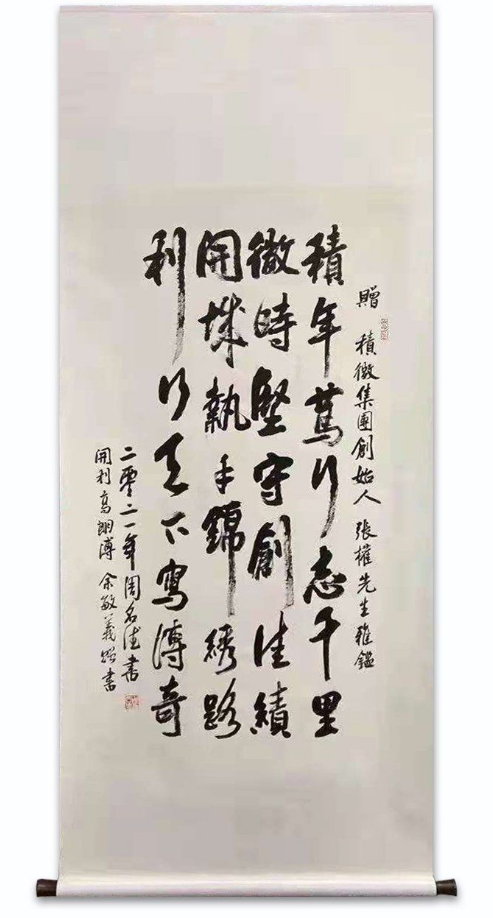 贈 積微集團創始人 張權先生雅鑑
積年篤行志千里
微時堅守創佳績
開城執手錦綉路
利行天下寫傳奇
二零二一年周名德書
開利高朗溥 余敏義 書